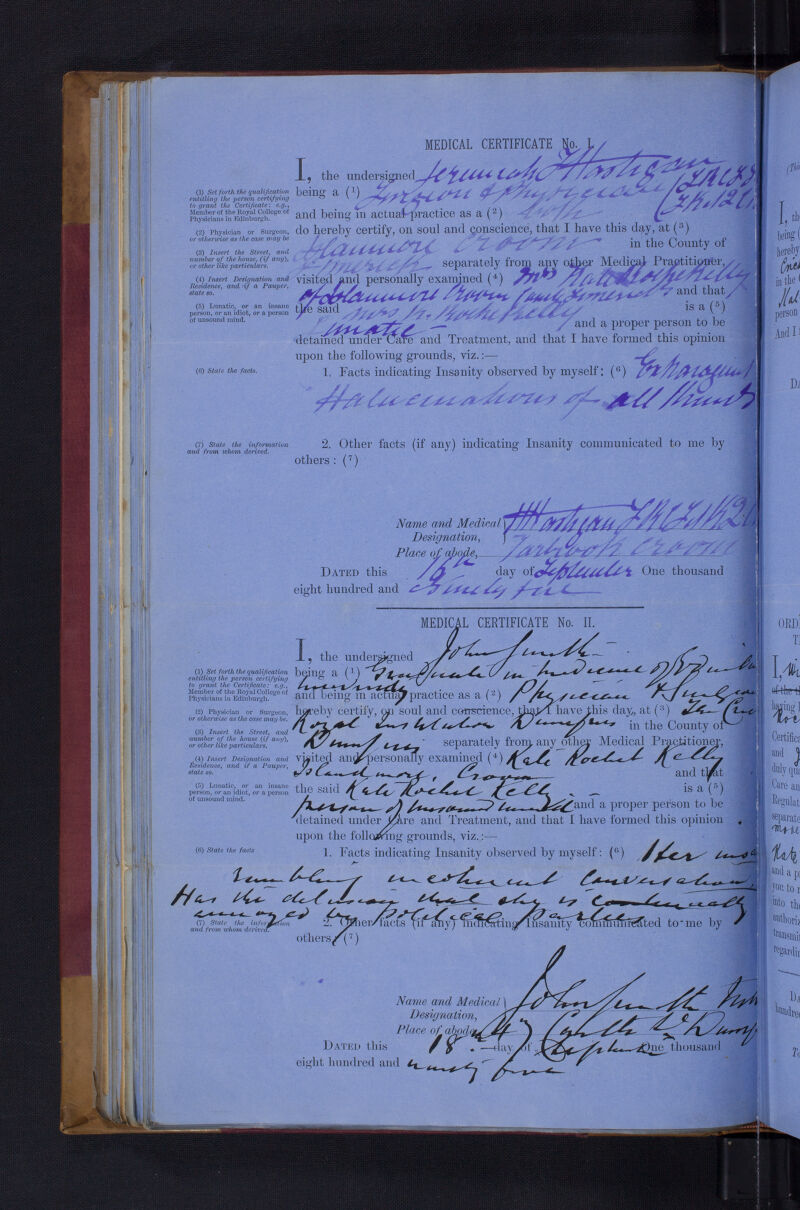 MEDICAL CERTIFICATE No. I.
I, the undersigned Jeremiah Hartigan
(1) Set forth the qualification entitling the person certifying to grant the Certificate: e.g., Member of the Royal College of Physicians in Edinburgh.
being a (1) Surgeon & Physician
and being in actual practice as a (2) both
(2) Physician or Surgeon, or otherwise as the case may be
do hereby certify, on soul and conscience, that I have this day, at (3)
Islanmore Croom in the County of
(3) Insert the Street, and number of the house, (if any), or other like particulars.
Limerick separately from any other Medical Practitioner,
(4) Insert Designation and Residence, and if a Pauper, state so.
visited and personally examined (4) Mrs Kate Roche Kelly
of Islanmore Croom County Limerick and that
(5) Lunatic, or an insane person, or an idiot, or a person of unsound mind.
the said Mrs K. Roche Kelly is a (5)
Lunatic and a proper person to be
detained under Care and Treatment, and that I have formed this opinion
upon the following grounds, viz.:—
(6) State the facts.
1. Facts indicating Insanity observed by myself: (6)
Halucinations of all kinds
(7) State the information and from whom derived.
2. Other facts (if any) indicating Insanity communicated to me by
others: (7)
Name and Medical Designation, J Hartigan
Place of abode, Tarbrook Croom
DATED this day of September One thousand
eight hundred and Ninety five
MEDICAL CERTIFICATE No. II.
I, the undersigned John Smith
(1) Set forth the qualification entitling the person certifying to grant the Certificate: e.g., Member of the Royal College of Physicians in Edinburgh.
being a (1) Graduate in medicine of Edinb
University
and being in actual practice as a (2) Physician & Surgeon
(2) Physician or Surgeon, or otherwise as the case may be.
hereby certify, on soul and conscience, that I have this day, at (3) The
Royal Institution Dumfries in the County of
(3) Insert the Street, and number of the house (if any), or other like particulars.
Dumfries separately from any other Medical Practitioner,
(4) Insert Designation and Residence, and if a Pauper, state so.
visited and personally examined (4) Kate Rochel Kelly
Islandmore, Croom and that
(5) Lunatic, or an insane person, or an idiot, or a person of unsound mind.
the said Kate Rochel Kelly is a (5)
person of unsound mind and a proper person to be
detained under Care and Treatment, and that I have formed this opinion
upon the following grounds, viz.:—
(6) State the facts
1. Facts indicating Insanity observed by myself: (6) Her
rambling incoherent conversation
Has the delusion that she is continually
annoyed by Political Parties
(7) State the information and from whom derived.
2. Other facts (if any) indicating Insanity communicated to me by
others, (7)
Name and Medical Designation, John Smith
Place of abode, Castle St Dumf
DATED this 18 day of September One thousand
eight hundred and ninety five